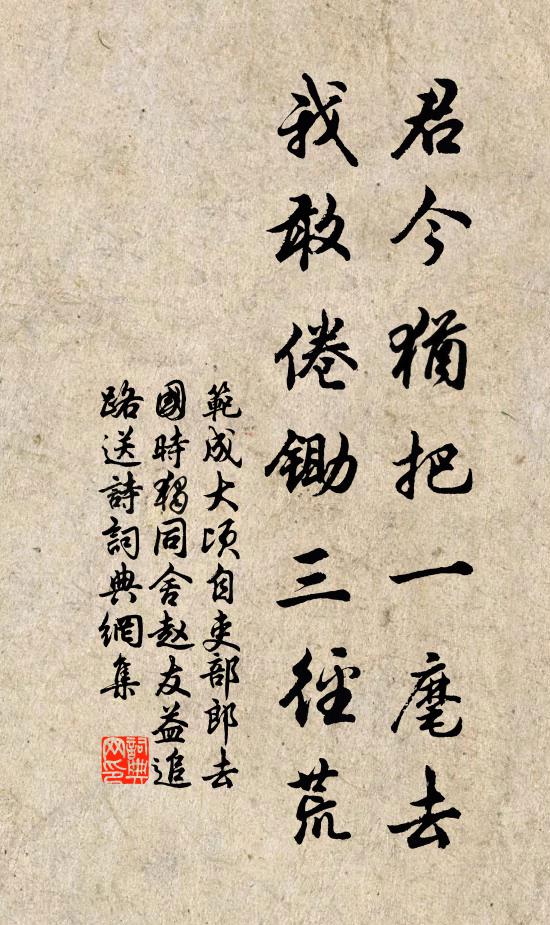 君今猶把一麾去
我敢倦鋤三徑荒
範成大頃自吏部郎去
國時獨同舍赵友益追
路送詩詞典網集
詞典
网印